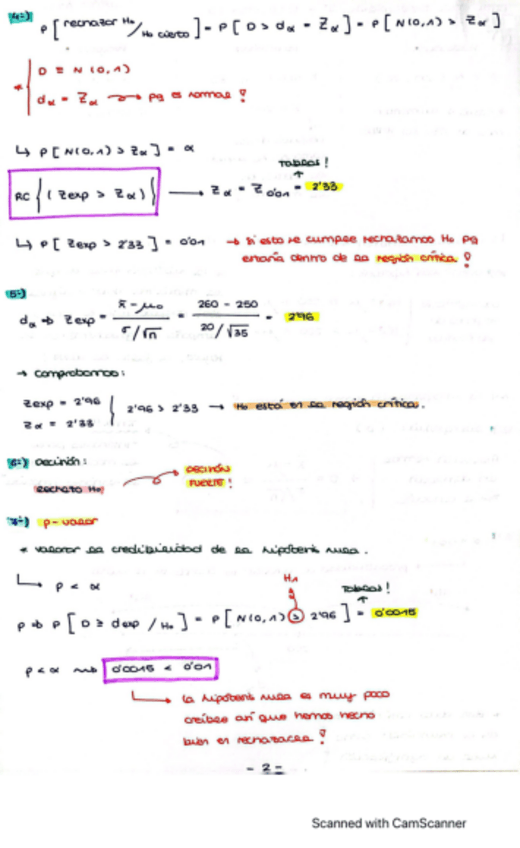 4-) P [ rechazar H₀ / H₀ cierto ] = P [ D > dα = Zα ] = P [ N(0,1) > Zα ]
* { D ≡ N (0,1)
dα = Zα → pq es normal !
↳ P [ N(0,1) > Zα ] = α
TABLAS !
RC { ( Zexp > Zα ) } → Zα = Z0'01 = 2'33
↳ P [ Zexp > 2'33 ] = 0'01 → si esto se cumple rechazamos H₀ pq
estaría dentro de la región crítica !
5-)
dα ⇒ Zexp = x̄ - μ₀ / σ/√n = 260 - 250 / 20/√35 = 2'96
→ comprobamos:
Zexp = 2'96
Zα = 2'33 } 2'96 > 2'33 → H₀ está en la región crítica.
6-) Decisión:
Rechazo H₀ → DECISIÓN
FUERTE !
7-) p-valor
* valorar la credibilidad de la hipótesis nula.
↳ P < α
H₁
TABLAS !
P ⇒ P [ D ≥ dexp / H₀ ] = P [ N(0,1) ≥ 2'96 ] = 0'0015
P < α ⇝ 0'0015 < 0'01
↳ la hipótesis nula es muy poco
creíble así que hemos hecho
bien en rechazarla !
- 2 -
Scanned with CamScanner